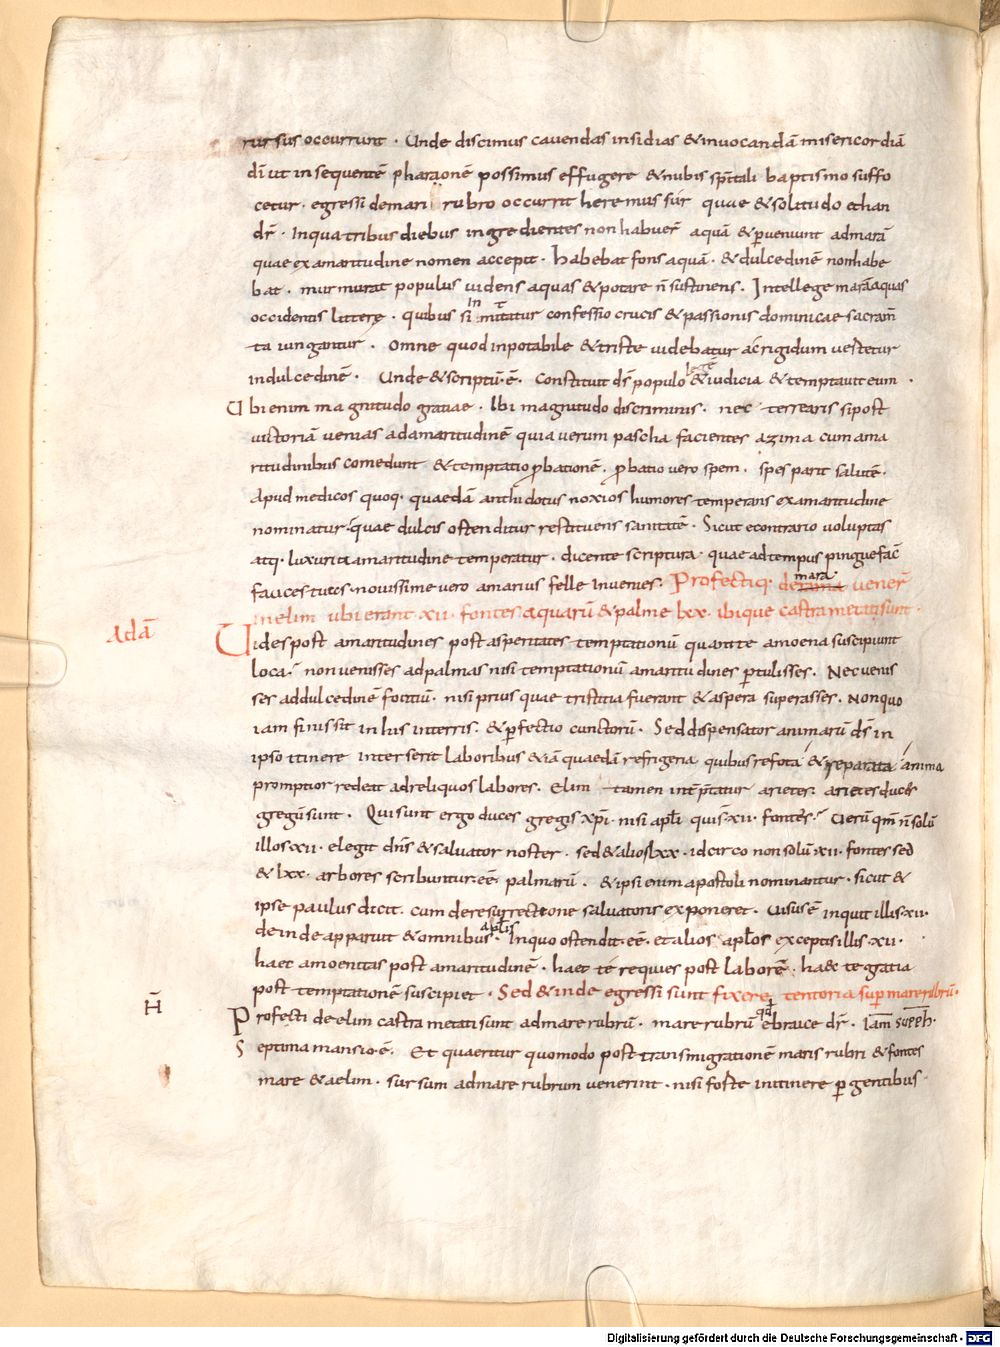 rursus occurrunt · Unde discimus cavendas insidias & invocandā misericordiā
dī ut insequentē pharaonē possimus effugere & nubis sp̄itali baptismo suffo
cetur · egressi de mari rubro occurrit heremus sur quae & solitudo ethan
dr̄ · In qua tribus diebus ingredientes non habuer̄ aquā & p̱veniunt ad marā
quae ex amaritudine nomen accepit · habebat fons aquā · & dulcedinē non habe
bat · murmurat populus videns aquas & potare n̄ sustinens · Intellege marā aquas
occidentis litterę · quibus si inmittatur confessio crucis & passionis dominicae sacram̄
ta iungantur · Omne quod inpotabile & triste videbatur ac rigidum vestetur
in dulcedinē · Unde & scriptū · ē · Constituit dś populo legē & iudicia & temptavit eum ·
Ubi enim magnitudo gratiae · Ibi magnitudo discriminis · nec terrearis si post
victoriā venias ad amaritudinē quia verum pascha facientes azima cum ama
ritudinibus comedunt & temptatio p̱bationē · p̱batio vero spem · spes parit salutē ·
Apud medicos quoq· quaedā antidotus noxios humores temperans ex amaritudine
nominatur · quae dulcis ostenditur restituens sanitatē · Sicut e contrario voluptas
atq· luxuria amaritudine temperatur · dicente scriptura · quae ad tempus pinguefac̄
fauces tuas · novissime vero amarius felle invenies · Profectiq· de mara venēr
in elim ubi erant · xii · fontes aquarū & palme lxx · ibique castra metati sunt ·
Adā Vides post amaritudines post asperitates temptationū quam te amoena suscipiunt
loca · non venisses ad palmas nisi temptationū amaritudines p̱tulisses · Nec venis
ses ad dulcedinē fontiū · nisi prius quae tristitia fuerant & aspera superasses · Non quo
iam finis sit in his interris · & p̱fectio cunctorū · Sed dispensator animarū dś in
ipso itinere inter serit laboribus & iā quaedā refrigeria quibus refota & reparata anima
promptior redeat ad reliquos labores · Elim tamen int̄p̄tatur arietes · arietes duces
gregū sunt · Qui sunt ergo duces gregis xp̄i · nisi ap̄li qui s̄ · xii · fontes · Verū qm̄ n̄ solū
illos · xii · elegit dn̄s & salvator noster · sed & alios lxx · idcirco non solū · xii · fontes sed
& lxx · arbores scribuntur · eē · palmarū · & ipsi enim apostoli nominantur · sicut &
ipse paulus dicit · cum de resurrectione salvatoris exponeret · Visus ē inquit illis · xii ·
deinde apparuit & omnibus ap̄lis · In quo ostendit · eē · et alios ap̄los exceptis illis · xii ·
haec amoenitas post amaritudinē · haec te requies post laborē · haec te gratia
post temptationē suscipiet · Sed & inde egressi sunt fixere tentoria sup̱ mare rubrū ·
H̄ Profecti de elim castra metati sunt ad mare rubrū · mare rubrū qđ ebraice dr̄ · Iām suph̄ ·
Septima mansio · ē · Et quaeritur quomodo post transmigrationē maris rubri & fontes
mare & aelim · sursum ad mare rubrum venerint · nisi forte in itinere p̱gentibus
Digitalisierung gefördert durch die Deutsche Forschungsgemeinschaft · DFG